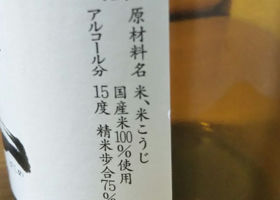 原材料名 米、米こうじ
国産米100%使用
アルコール分 15度 精米歩合75%